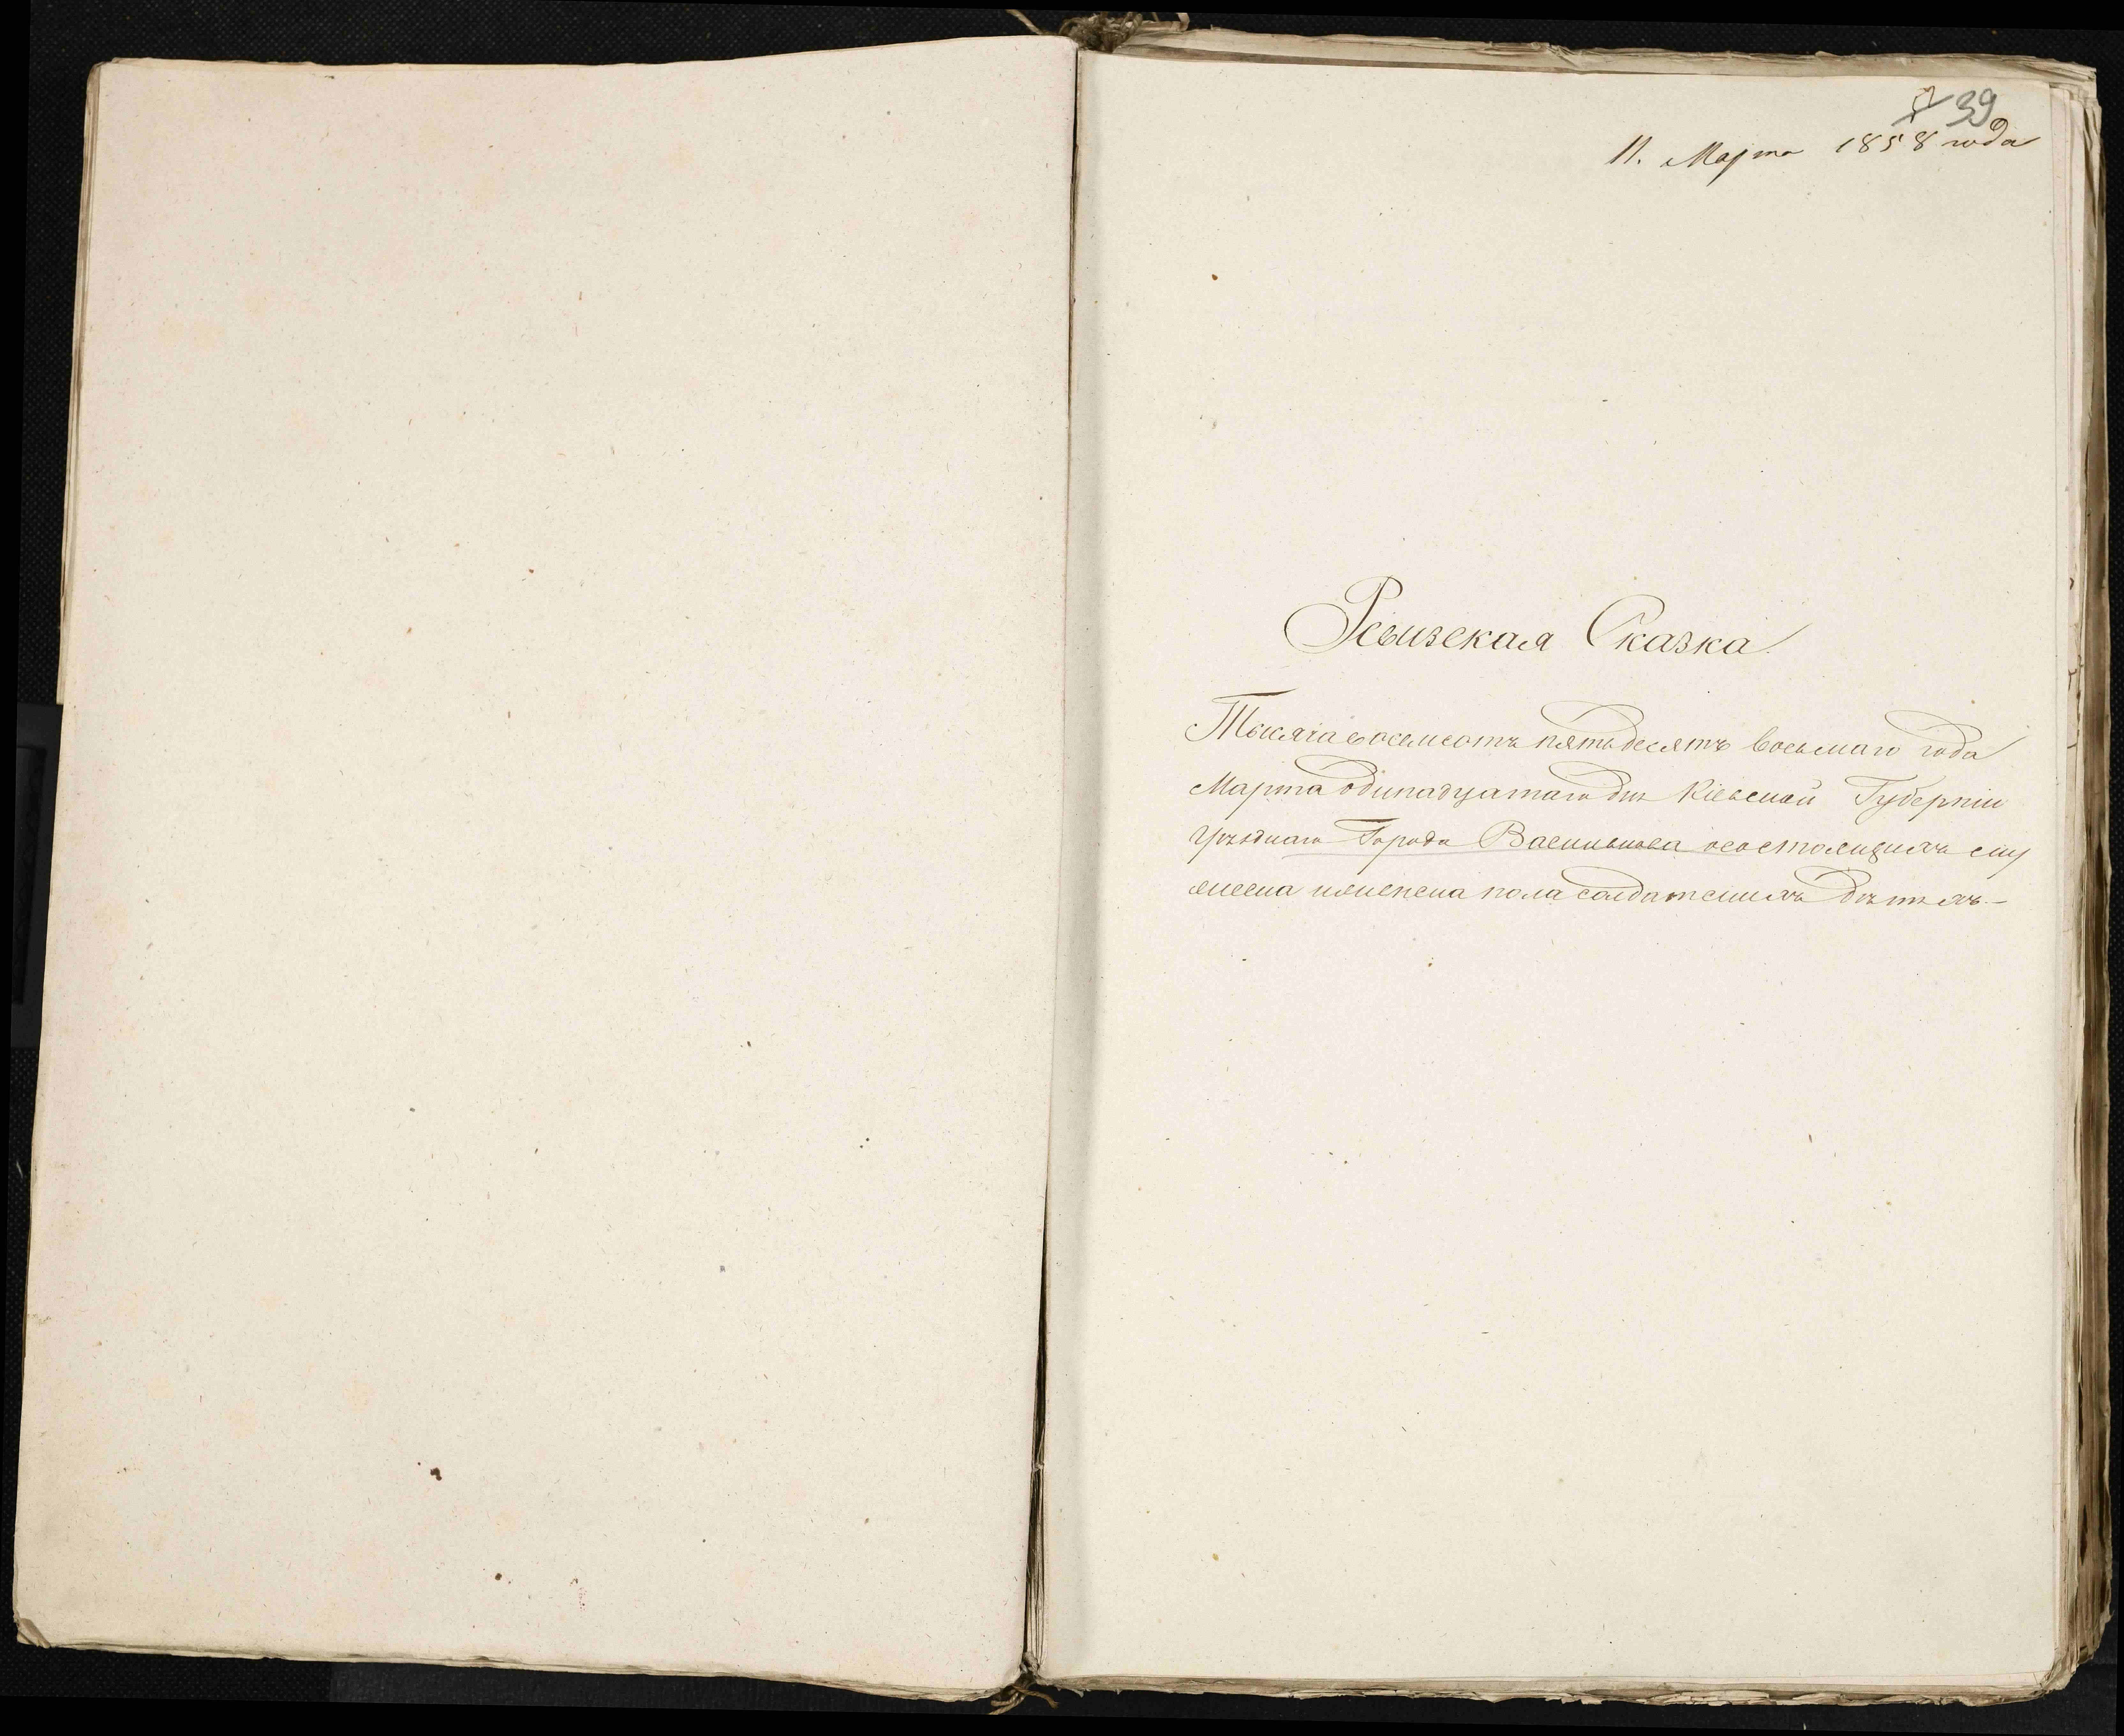 39
11. Марта 1858 года
Ревизская Сказка
Тысяча восемсотъ пятьдесятъ восьмаго года
Марта одинадцатаго дня Кіевской Губерніи
Уѣзднаго Города Василькова о состоящихъ му
жеска и женска пола солдатскихъ дѣтяхъ.-